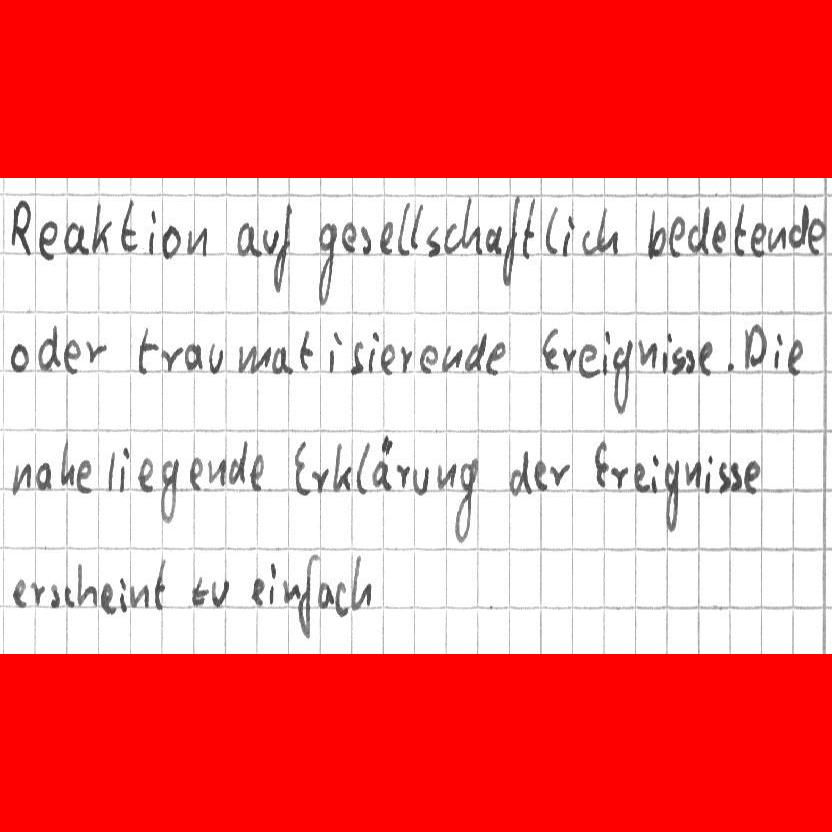 Reaktion auf gesellschaftlich bedetende
oder traumatisierende Ereignisse. Die
naheliegende Erklärung der Ereignisse
erscheint zu einfach